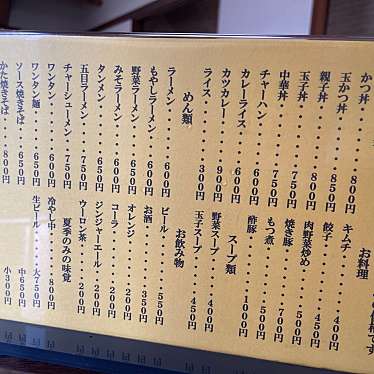 かつ丼
玉かつ丼・・・800円
親子丼・・・・750円
玉子丼・・・・700円
中華丼・・・・750円
チャーハン・・・600円
カレーライス・・600円
カツカレー・・・900円
ライス・・・・・300円
めん類
ラーメン・・・・600円
もやしラーメン・・650円
野菜ラーメン・・・650円
みそラーメン・・・650円
タンメン・・・・・650円
五目ラーメン・・・750円
チャーシューメン・・750円
ワンタン・・・・・600円
ワンタン麺・・・・650円
ソース焼きそば・・650円
かた焼きそば・・・800円
お料理
キムチ・・・・400円
餃子・・・・・450円
肉野菜炒め・・500円
焼き豚・・・・700円
もつ煮・・・・500円
酢豚・・・・・1000円
スープ類
野菜スープ・・400円
玉子スープ・・450円
お飲み物
ビール・・・・550円
お酒・・・・・350円
オレンジ・・・200円
コーラ・・・・200円
ジンジャーエール・・200円
ウーロン茶・・・200円
夏季のみの味覚
冷やし中・・・800円
生ビール・・大750円
中650円
小300円